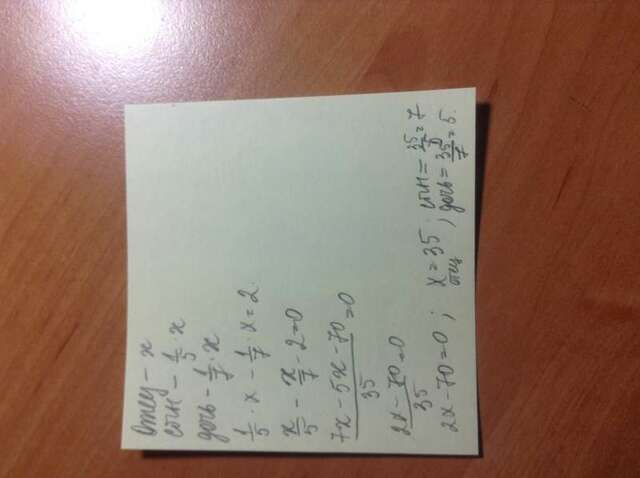 Отец - x
сын - 1/5 · x
дочь - 1/7 · x
1/5 · x - 1/7 · x = 2.
x/5 - x/7 - 2 = 0
(7x - 5x - 70)/35 = 0
(2x - 70)/35 = 0
2x - 70 = 0 ; x = 35 ; сын = 35/5 = 7
отец , дочь = 35/7 = 5.